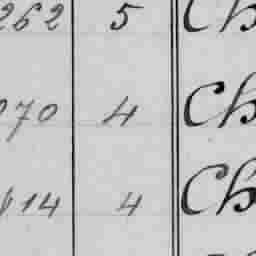 262 5 Ch
270 4 Ch
14 4 Ch